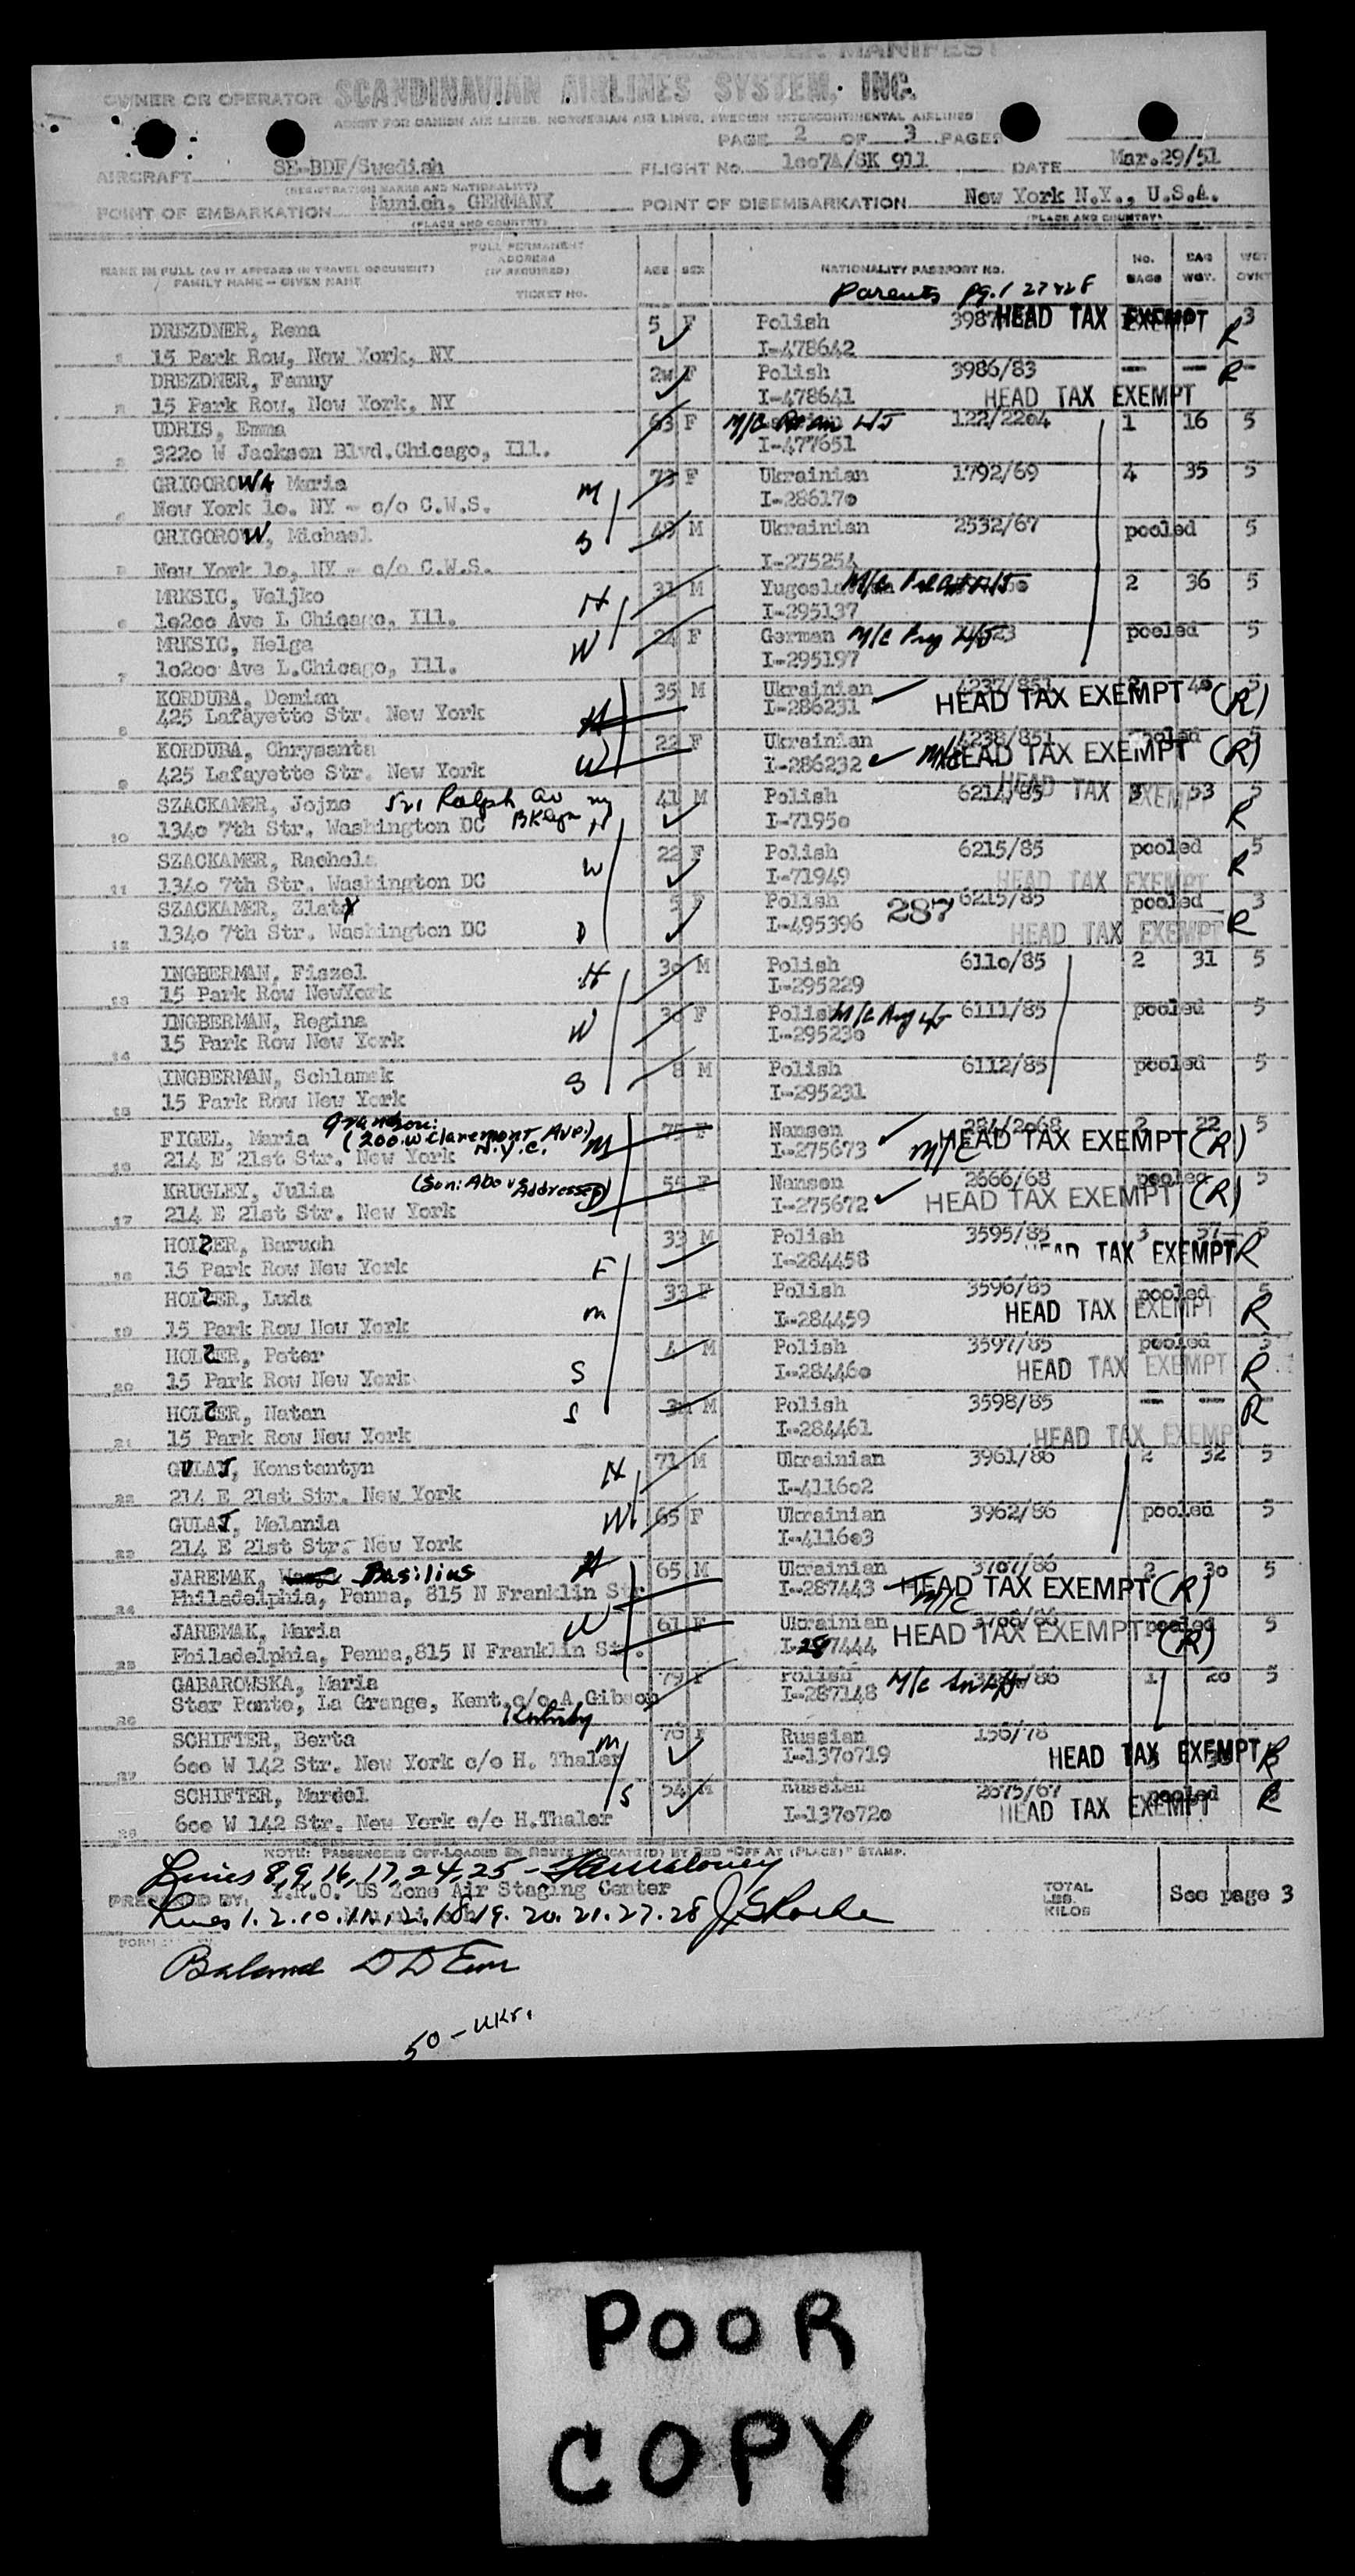 AIR PASSENGER MANIFEST
OWNER OR OPERATOR SCANDINAVIAN AIRLINES SYSTEM, INC.
AGENT FOR DANISH AIR LINES, NORWEGIAN AIR LINES, SWEDISH INTERCONTINENTAL AIRLINES
PAGE 2 OF 3 PAGES
AIRCRAFT SE-BDF/Swedish FLIGHT NO. 1007A/SK 911 DATE Mar.29/51
(REGISTRATION MARKS AND NATIONALITY)
POINT OF EMBARKATION Munich, GERMANY POINT OF DISEMBARKATION New York N.Y., U.S.A.
(PLACE AND COUNTRY) (PLACE AND COUNTRY)
NAME IN FULL (AS IT APPEARS IN TRAVEL DOCUMENT) FAMILY NAME - GIVEN NAME FULL PERMANENT ADDRESS (IF REQUIRED) TICKET NO. AGE SEX NATIONALITY PASSPORT NO. NO. BAGS BAG WGT. WGT
Parents pg. 1 27 & 28
DREZDNER, Rena 5 F Polish HEAD TAX EXEMPT 3
1 15 Park Row, New York, NY I-478642 R
DREZDNER, Fanny 2w F Polish 3986/83 — — R -
2 15 Park Row, New York, NY I-478641 HEAD TAX EXEMPT
UDRIS, Emma 63 F M/C 122/22o4 1 16 5
3 322o W Jackson Blvd.Chicago, Ill. I-477651
GRIGOROWA Maria 73 F Ukrainian 1792/69 4 35 5
4 New York 1o. NY - c/o C.W.S. M I-28617o
GRIGOROW, Michael S 49 M Ukrainian 2532/67 pooled 5
5 New York 1o, NY - c/o C.W.S. I-275254
MRKSIC, Veljko H 31 M M/C 2 36 5
6 1o2oo Ave L Chicago, Ill. I-295137
MRKSIC, Helga W 24 F German M/C pooled 5
7 1o2oo Ave L.Chicago, Ill. I-295197
KORDUBA, Demian 35 M Ukrainian 4237/851 HEAD TAX EXEMPT 5
8 425 Lafayette Str. New York H I-286231 (R)
KORDUBA, Chrysanta 22 F Ukrainian 4238/851 M/C HEAD TAX EXEMPT pooled (R)
9 425 Lafayette Str. New York W I-286232
SZACKAMER, Jojne 521 Ralph av Bklyn ny 41 M Polish 6214/85 HEAD TAX EXEMPT 3 53 5
10 134o 7th Str. Washington DC H I-7195o R
SZACKAMER, Rachela W 22 F Polish 6215/85 pooled 5
11 134o 7th Str. Washington DC I-71949 HEAD TAX EXEMPT R
SZACKAMER, Zlata 5 F Polish 6215/85 pooled 3
12 134o 7th Str. Washington DC D I-495396 287 HEAD TAX EXEMPT R
INGBERMAN, Fiszel H 3o M Polish 611o/85 2 31 5
13 15 Park Row NewYork I-295229
INGBERMAN, Regina W 3o F Polish M/C 6111/85 pooled 5
14 15 Park Row New York I-29523o
INGBERMAN, Schlamek S 8 M Polish 6112/85 pooled 5
15 15 Park Row New York I-295231
Grandson:
FIGEL, Maria (200 W Claremont Ave.) N.Y.C. M 75 F Nansen 2 22 5
16 214 E 21st Str. New York I-275673 M/C HEAD TAX EXEMPT (R)
KRUGLEY, Julia (Son: Above Addresses) 55 F Nansen 2666/68 pooled 5
17 214 E 21st Str. New York I-275672 HEAD TAX EXEMPT (R)
HOLZER, Baruch 33 M Polish 3595/85 3 57 5
18 15 Park Row New York F I-284458 HEAD TAX EXEMPT R
HOLZER, Luda 33 F Polish 3596/85 pooled 5
19 15 Park Row New York M I-284459 HEAD TAX EXEMPT R
HOLZER, Peter 4 M Polish 3597/85 pooled 3
20 15 Park Row New York S I-28446o HEAD TAX EXEMPT R
HOLZER, Natan S M Polish 3598/85 — — R
21 15 Park Row New York I-284461 HEAD TAX EXEMPT
GULAJ, Konstantyn H 71 M Ukrainian 3961/86 2 32 5
22 214 E 21st Str. New York I-4116o2
GULAJ, Melania W 65 F Ukrainian 3962/86 pooled 5
23 214 E 21st Str. New York I-4116o3
JAREMAK, Basilius H 65 M Ukrainian 3707/86 2 3o 5
24 Philadelphia, Penna, 815 N Franklin Str I-287443 M/C HEAD TAX EXEMPT (R)
JAREMAK, Maria W 61 F Ukrainian pooled 5
25 Philadelphia, Penna,815 N Franklin Str. I-287444 HEAD TAX EXEMPT (R)
GABAROWSKA, Maria 79 F Polish M/C 1 2o 5
26 Star Ponte, La Grange, Kent.c/o A.Gibson I-287148
SCHIFTER, Berta M 76 F Russian 156/78
27 6oo W 142 Str. New York c/o H. Thaler I-137o719 HEAD TAX EXEMPT R
SCHIFTER, Mardel S 54 M Russian 2675/67 pooled
28 6oo W 142 Str. New York c/o H.Thaler I-137o72o HEAD TAX EXEMPT R
NOTE: PASSENGERS OFF-LOADED EN ROUTE INDICATE(D) BY RED "OFF AT (PLACE)" STAMP.
Lines 8, 9, 16, 17, 24, 25 -
PREPARED BY: I.R.O. US Zone Air Staging Center TOTAL LBS. KILOS See page 3
Lines 1. 2. 10. 11. 12. 18. 19. 20. 21. 27. 28
FORM
Balance
50 - UKr.
POOR
COPY